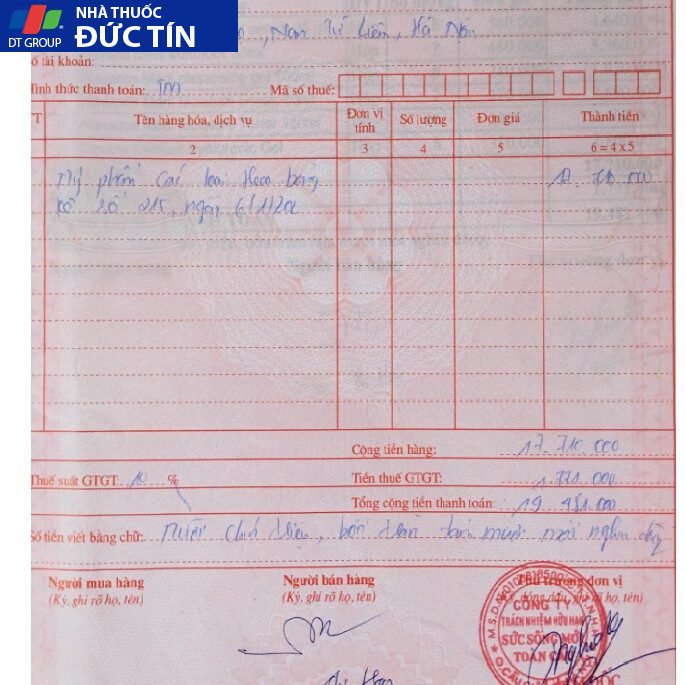 NHÀ THUỐC
DT GROUP ĐỨC TÍN
, Nam Từ Liêm, Hà Nội
Số tài khoản:
Hình thức thanh toán: TM Mã số thuế:
TT Tên hàng hóa, dịch vụ Đơn vị tính Số lượng Đơn giá Thành tiền
2 3 4 5 6 = 4 x 5
Mỹ phẩm các loại theo bảng 17.710.000
kê số 215, ngày 6/1/20
Cộng tiền hàng: 17.710.000
Thuế suất GTGT 10 % Tiền thuế GTGT: 1.771.000
Tổng cộng tiền thanh toán: 19.481.000
Số tiền viết bằng chữ: Mười chín triệu, bốn trăm tám mươi mốt nghìn đồng
Người mua hàng Người bán hàng Thủ trưởng đơn vị
(Ký, ghi rõ họ, tên) (Ký, ghi rõ họ, tên) (Ký, đóng dấu, ghi rõ họ, tên)
CÔNG TY
TRÁCH NHIỆM HỮU HẠN
SỨC SỐNG MỚI
TOÀN